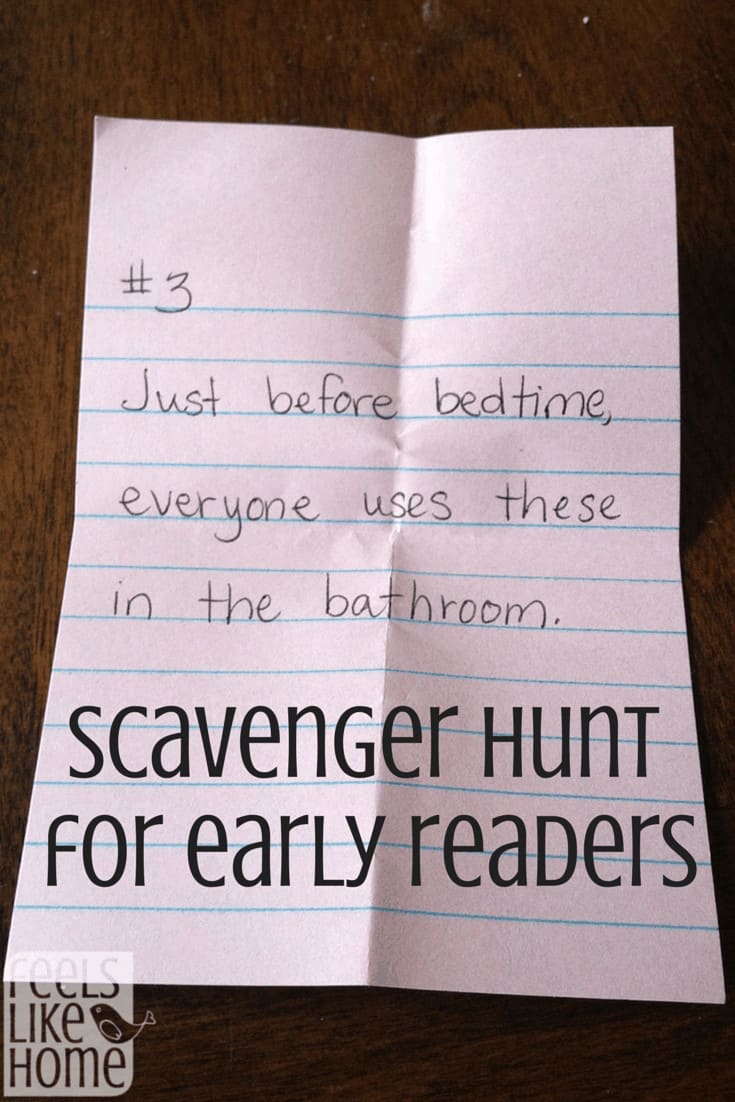 #3
Just before bedtime,
everyone uses these
in the bathroom.
scavenger hunt
for early readers
FEELS
LIKE
HOME